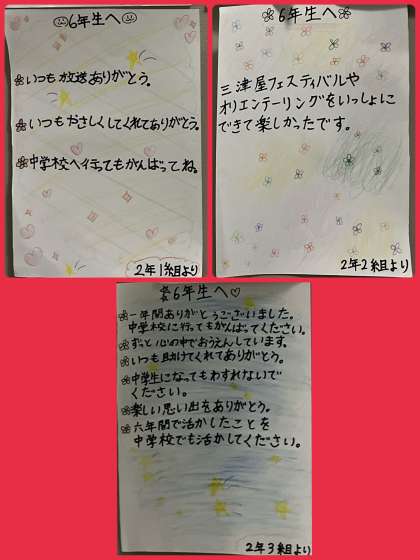 ☺6年生へ☺
❀いつも放送ありがとう。
❀いつもやさしくしてくれてありがとう。
❀中学校へ行ってもがんばってね。
2年1組より
❀6年生へ❀
三津屋フェスティバルや
オリエンテーリングをいっしょに
できて楽しかったです。
2年2組より
☆6年生へ♡
❀一年間ありがとうございました。
中学校に行ってもがんばってください。
❀ずっと心の中でおうえんしています。
❀いつも助けてくれてありがとう。
❀中学生になってもわすれないで
ください。
❀楽しい思い出をありがとう。
❀六年間で活かしたことを
中学校でも活かしてください。
2年3組より